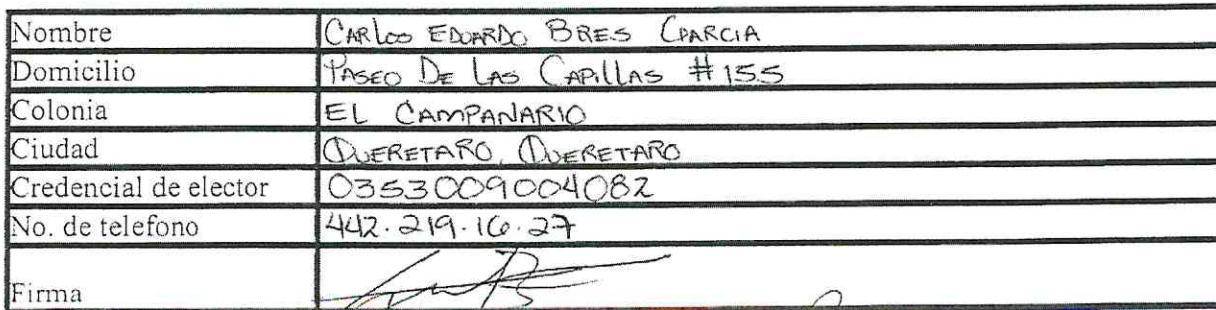 Nombre CARLOS EDUARDO BRES GARCIA
Domicilio PASEO DE LAS CAPILLAS #155
Colonia EL CAMPANARIO
Ciudad QUERETARO, QUERETARO
Credencial de elector 0353009004082
No. de telefono 442.219.16.27
Firma